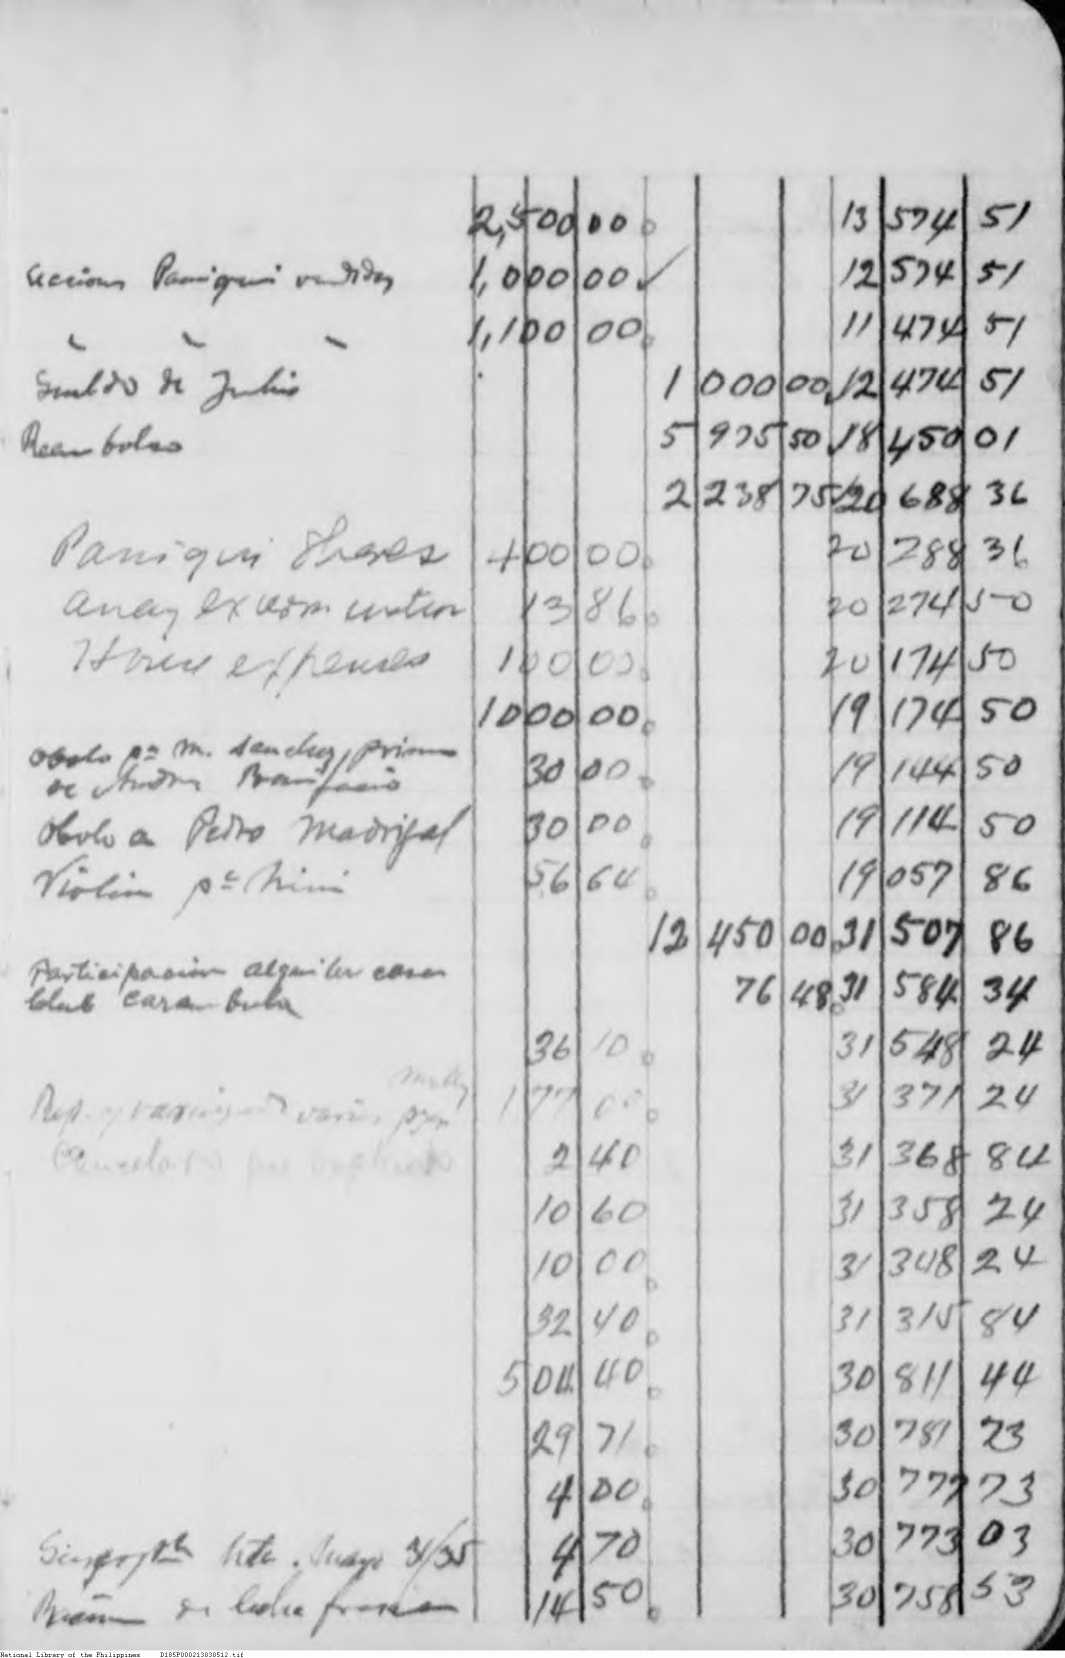 2,500 00 13 574 51
acciones Paniqui vendidas 1,000 00 ✓ 12 574 51
" " " 1,100 00 11 474 51
Sueldo de Julio 1 000 00 12 474 51
Reembolso 5 975 50 18 450 01
2 238 75 20 688 36
Paniqui Shares 400 00 20 288 36
13 86 20 274 50
House expenses 100 00 20 174 50
1000 00 19 174 50
Obolo pa M. Sanchez, primo
de Andres Bonifacio 30 00 19 144 50
Obolo a Pedro Madrigal 30 00 19 114 50
Violin pa Nini 56 64 19 057 86
12 450 00 31 507 86
Participacion alquiler casa
Club Carambola 76 48 31 584 34
36 10 31 548 24
177 00 31 371 24
2 40 31 368 84
10 60 31 358 24
10 00 31 348 24
32 40 31 315 84
504 40 30 811 44
29 71 30 781 73
4 00 30 777 73
31/35 4 70 30 773 03
de leche fresca 14 50 30 758 53
National Library of the Philippines D185P000213030512.tif